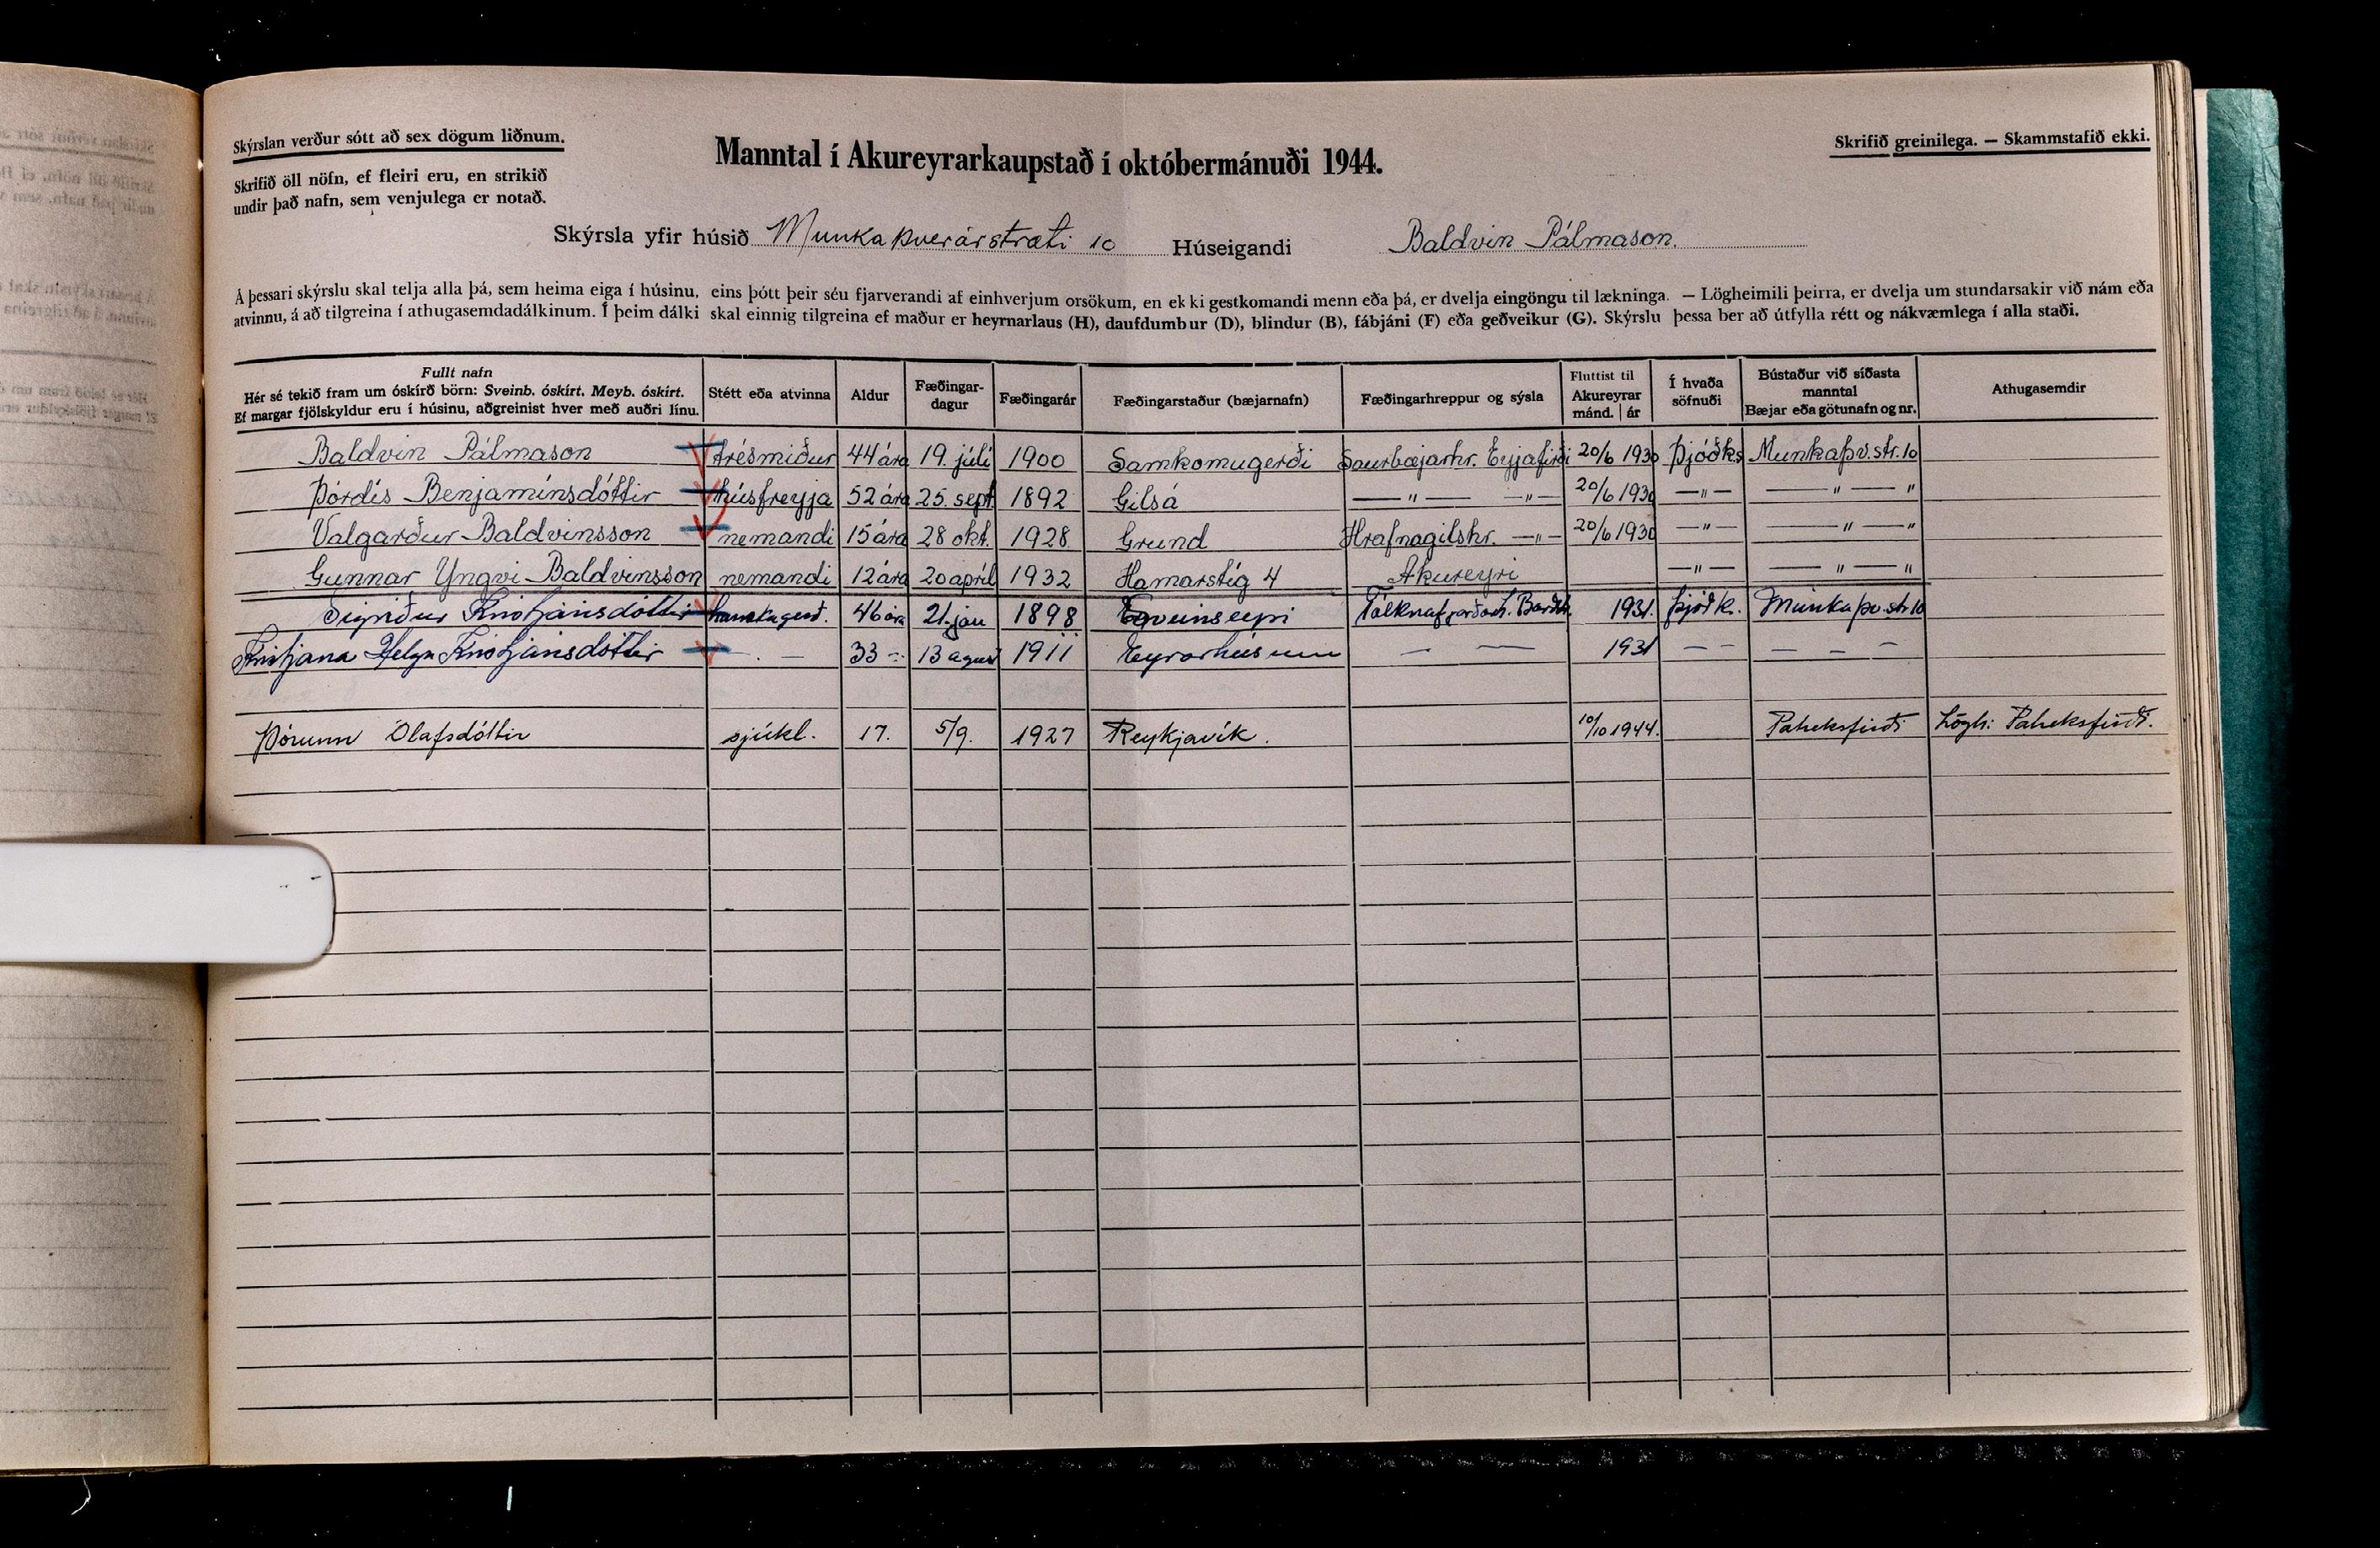 Skýrslan verður sótt að sex dögum liðnum.
Skrifið öll nöfn, ef fleiri eru, en strikið
undir það nafn, sem venjulega er notað.
Manntal í Akureyrarkaupstað í októbermánuði 1944.
Skrifið greinilega. — Skammstafið ekki.
Skýrsla yfir húsið Munkaþverárstræti 10 Húseigandi Baldvin Pálmason.
Á þessari skýrslu skal telja alla þá, sem heima eiga í húsinu, eins þótt þeir séu fjarverandi af einhverjum orsökum, en ekki gestkomandi menn eða þá, er dvelja eingöngu til lækninga. — Lögheimili þeirra, er dvelja um stundarsakir við nám eða
atvinnu, á að tilgreina í athugasemdadálkinum. Í þeim dálki skal einnig tilgreina ef maður er heyrnarlaus (H), daufdumbur (D), blindur (B), fábjáni (F) eða geðveikur (G). Skýrslu þessa ber að útfylla rétt og nákvæmlega í alla staði.
Fullt nafn
Hér sé tekið fram um óskírð börn: Sveinb. óskírt. Meyb. óskírt.
Ef margar fjölskyldur eru í húsinu, aðgreinist hver með auðri línu.
Stétt eða atvinna
Aldur
Fæðingar-
dagur
Fæðingarár
Fæðingarstaður (bæjarnafn)
Fæðingarhreppur og sýsla
Fluttist til
Akureyrar
mánd. | ár
Í hvaða
söfnuði
Bústaður við síðasta
manntal
Bæjar eða götunafn og nr.
Athugasemdir
Baldvin Pálmason trésmiður 44 ára 19. júlí 1900 Samkomugerði Saurbæjarhr. Eyjafirði 20/6 1930 Þjóðk. Munkaþv.str. 10
Þórdís Benjamínsdóttir húsfreyja 52 ára 25. sept. 1892 Gilsá — " — — " — 20/6 1930 — " — — " — "
Valgarður Baldvinsson nemandi 15 ára 28 okt. 1928 Grund Hrafnagilshr. — " — 20/6 1930 — " — — " — "
Gunnar Yngvi Baldvinsson nemandi 12 ára 20 apríl 1932 Hamarstíg 4 Akureyri — " — — " — "
Sigríður Kristjánsdóttir 46 ára 21. jan 1898 1931. Þjóðk. Munkaþv.str 10
Kristjana Helga Kristjánsdóttir — . — 33 – 13 agust 1911 Eyrarhúsum — — 1931 — — — — —
Þórunn Ólafsdóttir sjúkl. 17. 5/9. 1927 Reykjavík. 10/10 1944. Patreksfirði Lögh: Patreksfirði.